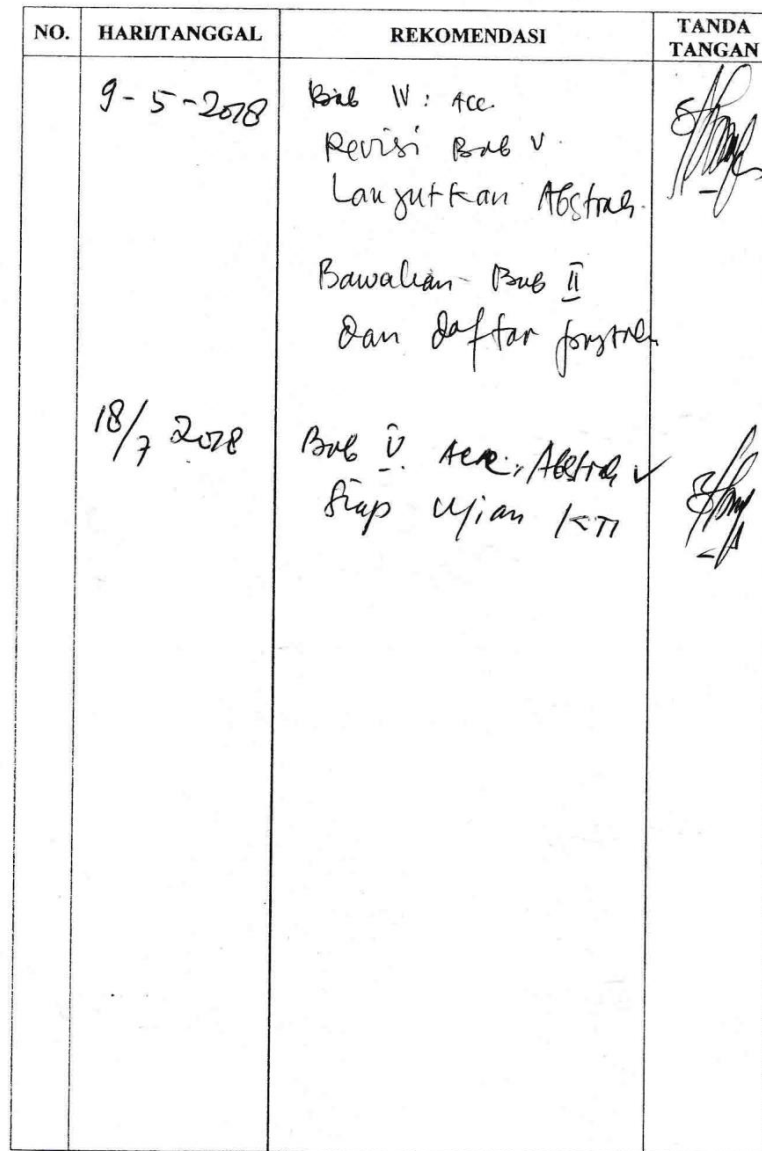 NO. HARI/TANGGAL REKOMENDASI TANDA TANGAN
9-5-2018 Bab IV: Acc
Revisi Bab V.
Lanjutkan Abstrak.
Bawakan Bab II
dan daftar pustaka
18/7 2018 Bab V. Acc, Abstrak ✓
Siap Ujian KTI